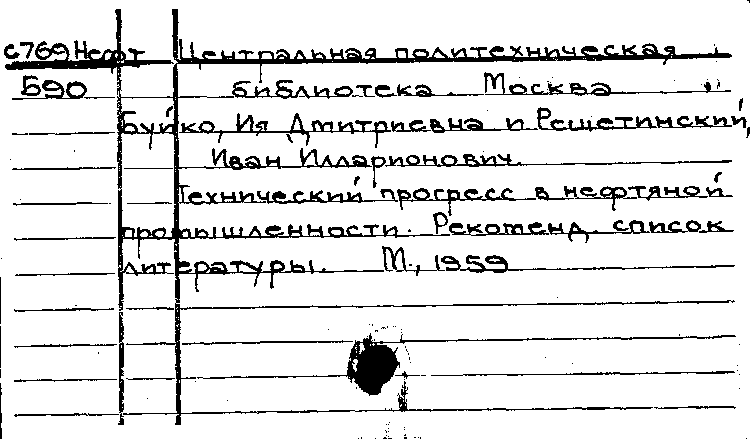 с769Нефт Центральная политехническая
Б90 библиотека. Москва
Буйко, Ия Дмитриевна и Решетинский,
Иван Илларионович.
Технический прогресс в нефтяной
промышленности. Рекоменд. список
литературы. М., 1959